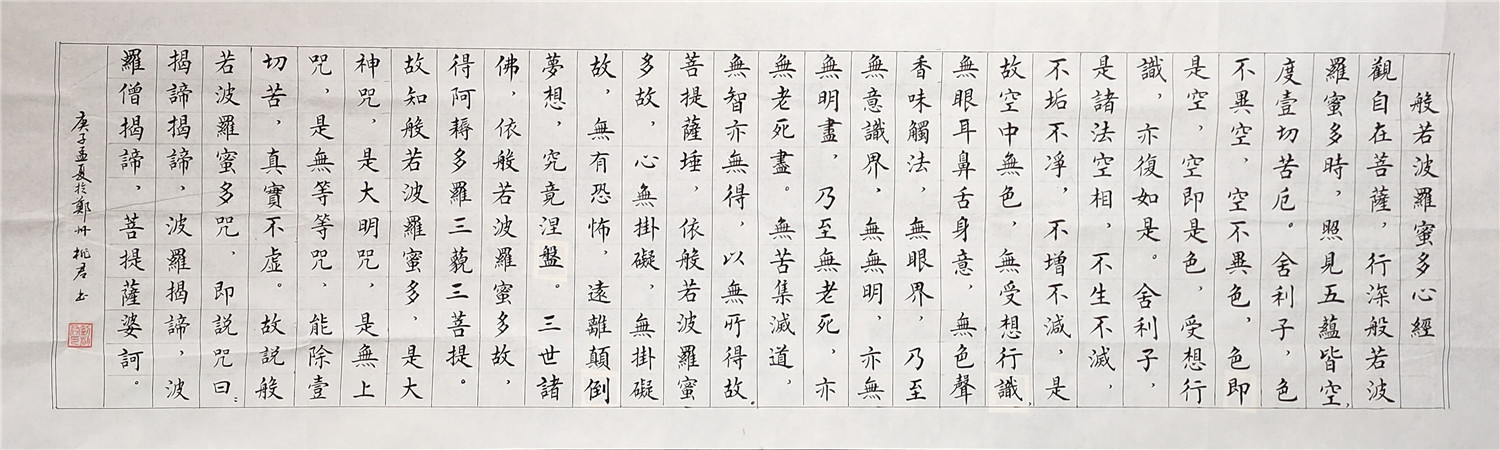 般若波羅蜜多心經
觀自在菩薩，行深般若波
羅蜜多時，照見五蘊皆空，
度壹切苦厄。舍利子，色
不異空，空不異色，色即
是空，空即是色，受想行
識，亦復如是。舍利子，
是諸法空相，不生不滅，
不垢不淨，不增不減，是
故空中無色，無受想行識，
無眼耳鼻舌身意，無色聲
香味觸法，無眼界，乃至
無意識界，無無明，亦無
無明盡，乃至無老死，亦
無老死盡。無苦集滅道，
無智亦無得，以無所得故。
菩提薩埵，依般若波羅蜜
多故，心無掛礙，無掛礙
故，無有恐怖，遠離顛倒
夢想，究竟涅盤。三世諸
佛，依般若波羅蜜多故，
得阿耨多羅三藐三菩提。
故知般若波羅蜜多，是大
神咒，是大明咒，是無上
咒，是無等等咒，能除壹
切苦，真實不虛。故説般
若波羅蜜多咒，即説咒曰：
揭諦揭諦，波羅揭諦，波
羅僧揭諦，菩提薩婆訶。
庚子孟夏於鄭州 桃君 书